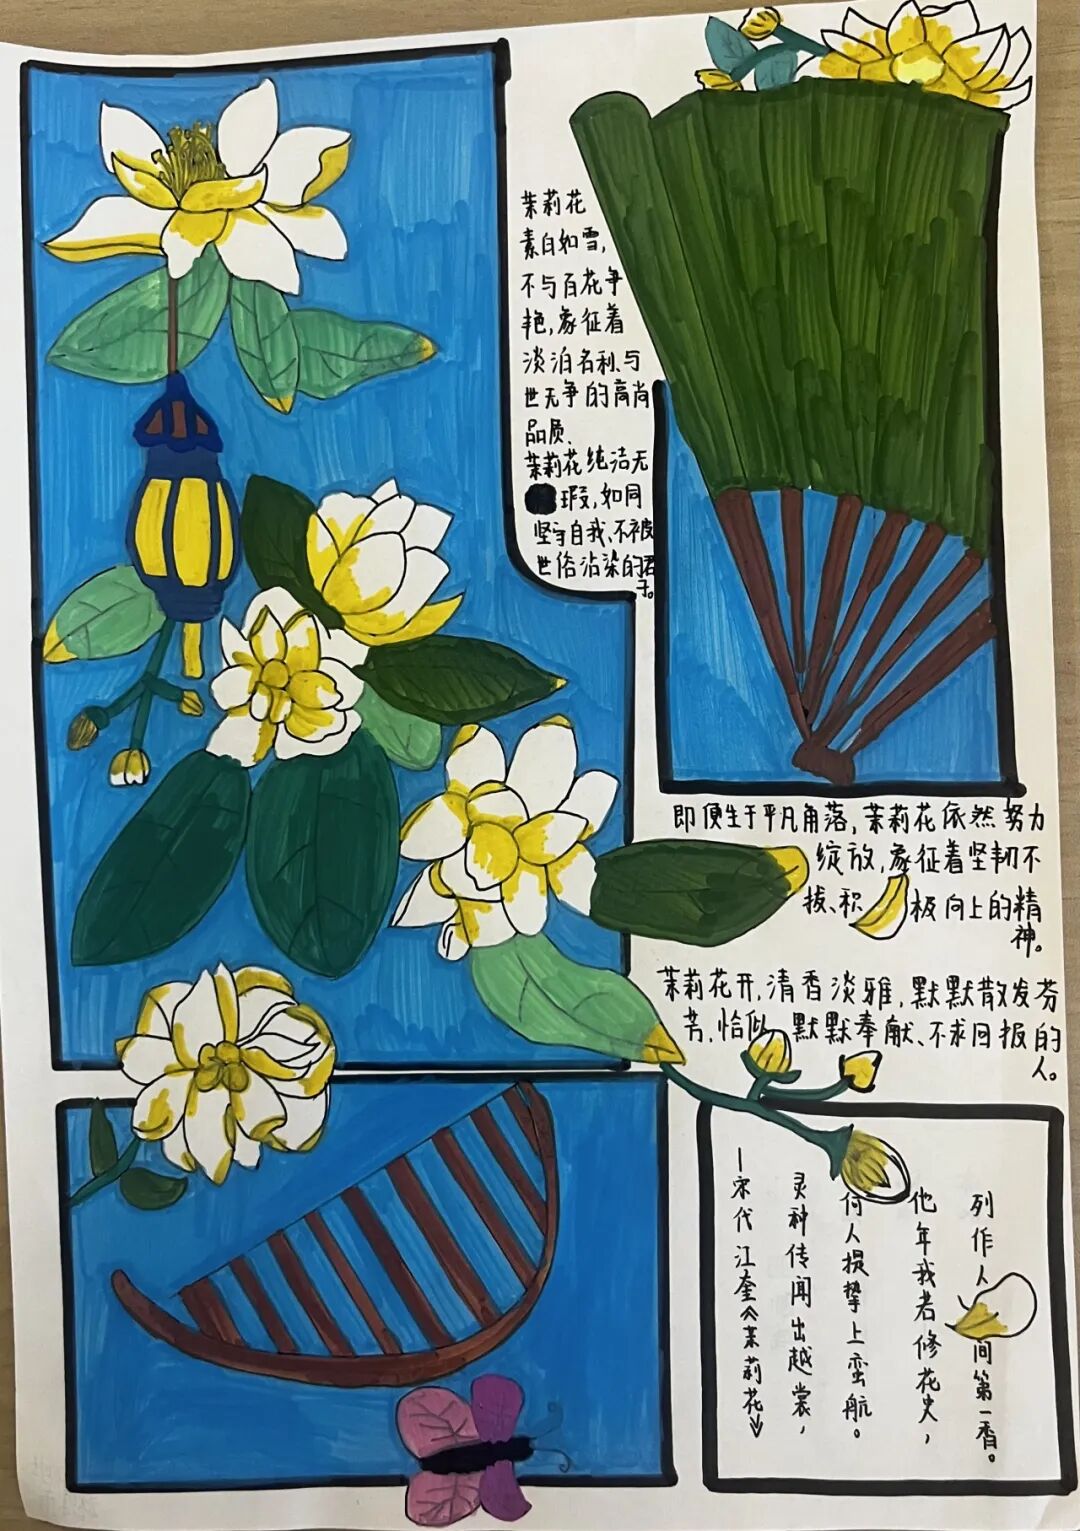 茉莉花
素白如雪，
不与百花争
艳，象征着
淡泊名利、与
世无争的高尚
品质、
茉莉花纯洁无
瑕，如同
坚守自我、不被
世俗沾染的君
子。
即便生于平凡角落，茉莉花依然努力
绽放，象征着坚韧不
拔、积极向上的精
神。
茉莉花开，清香淡雅，默默散发芬
芳，恰似默默奉献、不求回报的
人。
—宋代 江奎《茉莉花》
灵种传闻出越裳，
何人提挚上蛮航。
他年我若修花史，
列作人间第一香。